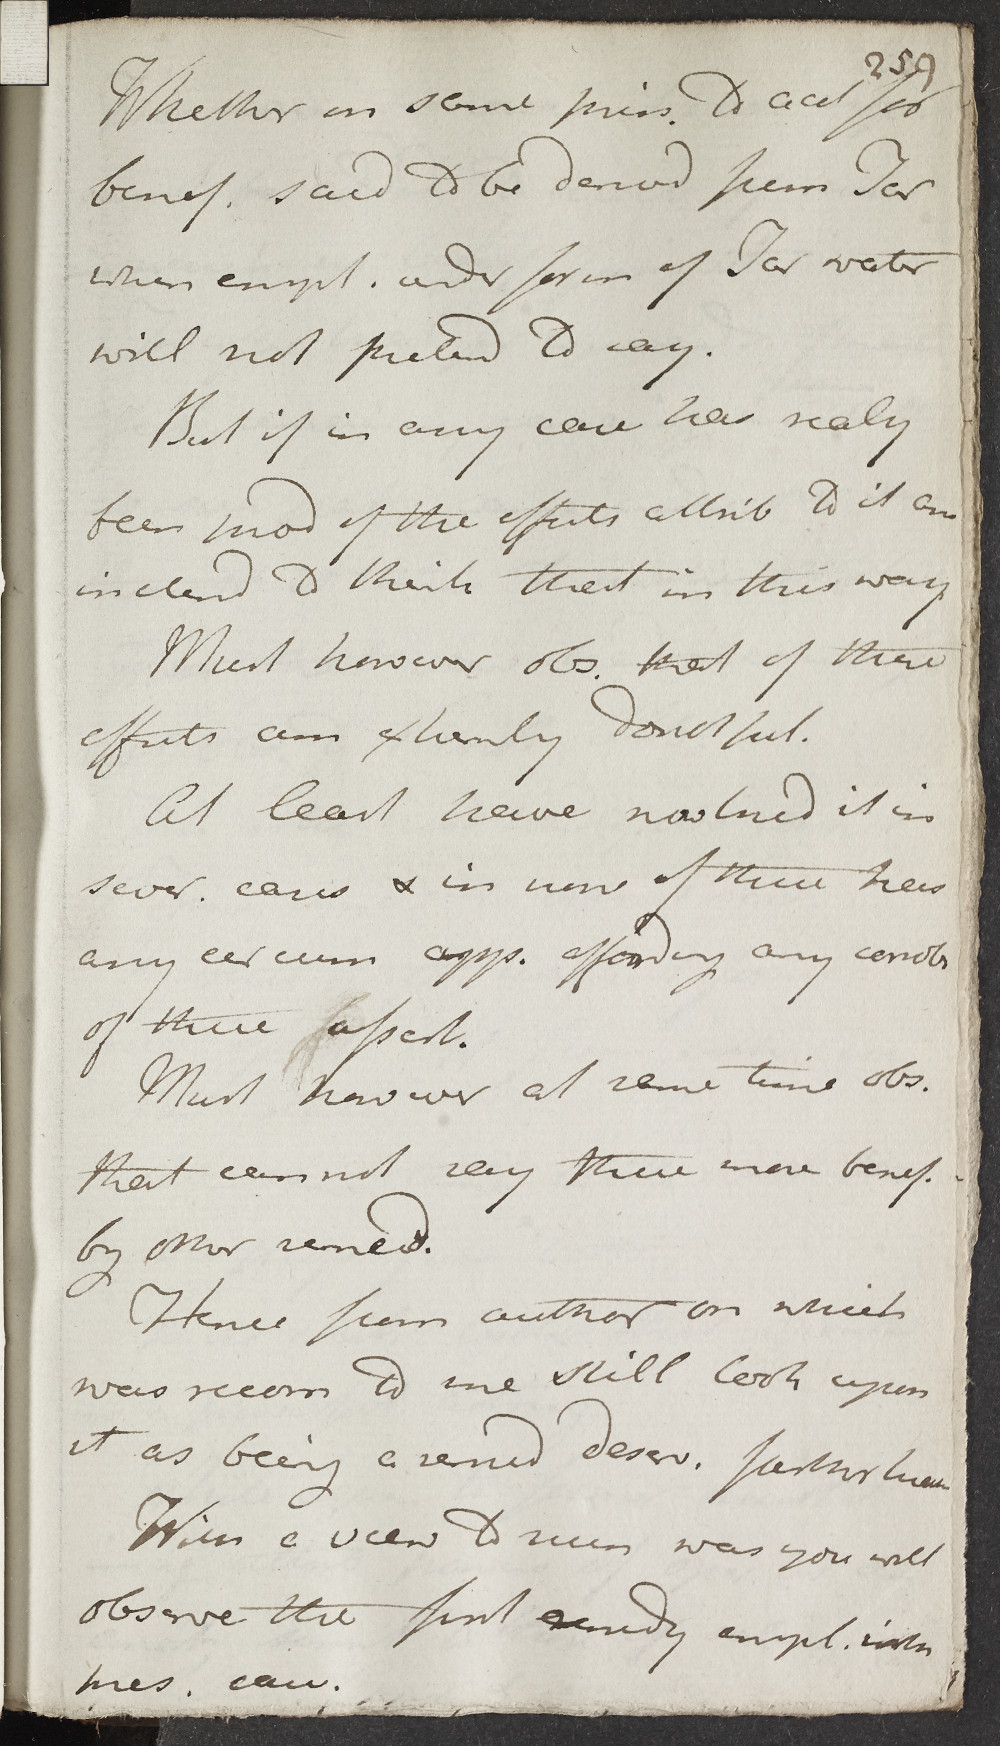 259
Whether on same prin. to act for
benef. said to be derivd from Tar
when empl. under form of Tar water
will not pretend to say.
But if in any case has realy
been prod of the effects attrib to it am
inclend to think that in this way
Must however obs. that of these
effects am extremly doubtful.
At least have now tried it in
sever. cases & in none of these has
any circum apps. affording any corrob
of these assert.
Must however at same time obs.
that cannot say these more benef.
by other remed.
Hence from author on which
was recom to me still look upon
it as being a remed deserv. farther
With a view to was you will
observe the first remedy empl. in
pres. case.